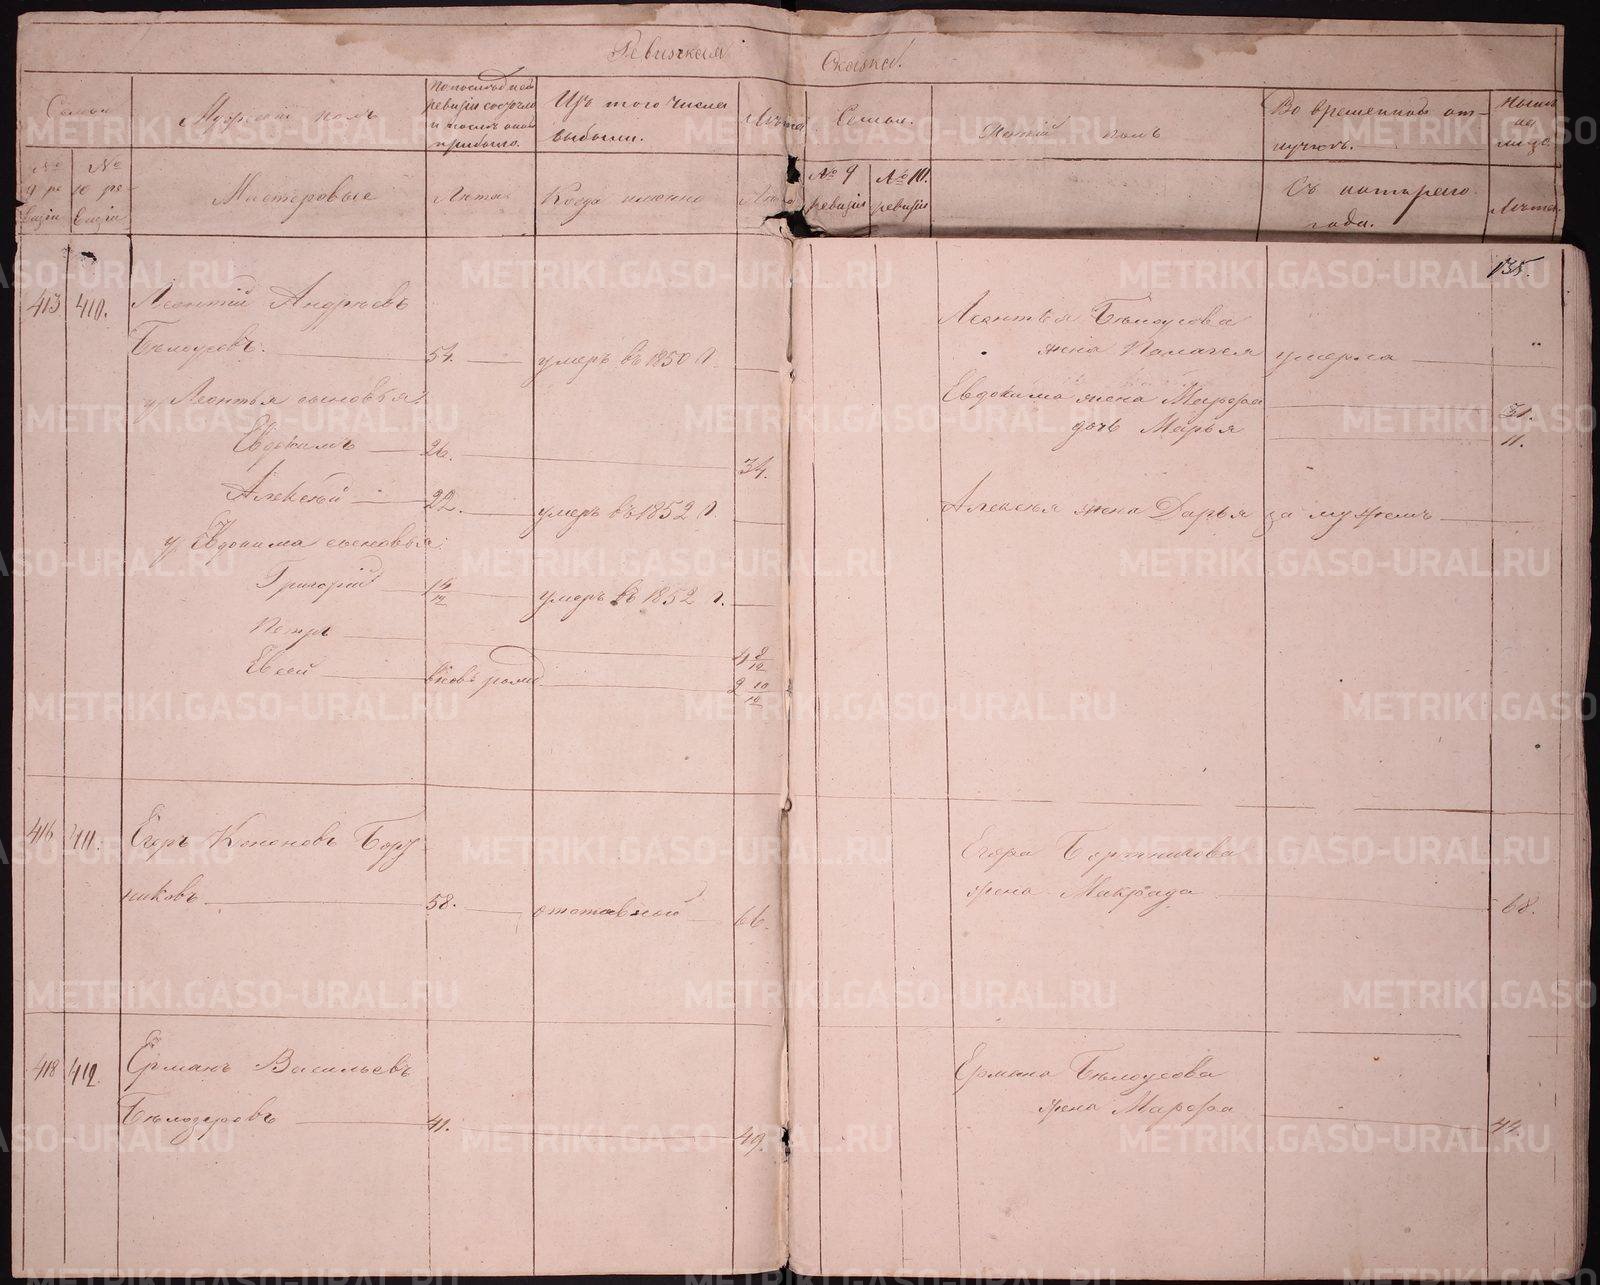 Ревизская Сказка.
Семьи
Мужескій полъ
По последней
ревизіи состояло
и после оной
прибыло.
Изъ того числа
выбыли.
Лѣта
Семьи.
Женскій полъ
Во временной от-
лучкѣ.
Нынѣ
на
лицо.
№ 9 ре
визіи
№ 10 ре-
визіи
Мастеровые
Лѣта
Когда именно
№ 9
ревизіи
№ 10.
ревизіи
Съ котораго
года.
Лѣта
135.
413 410. Леонтій Андреевъ
Бѣлоусовъ. 54. умеръ въ 1850 г.
у Леонтья сыновья:
Евдокимъ 26. 34.
Алексѣй 22. умеръ въ 1852 г.
у Евдокима сыновья:
Григорій умеръ въ 1852 г.
Петръ 4 8/12
Евсей вновь рожд. 2 10/12
Леонтья Бѣлоусова
жена Палагея умерла
Евдокима жена Марфа 31.
дочь Марья 11.
Алексѣя жена Дарья за мужемъ
416 411. Егоръ Кононовъ Борт
никовъ 58. отставной 66.
Егора Бортникова
жена Макрида 68.
418 412. Ерманъ Васильевъ
41. 49.
Ермана Бѣлоусова
жена Марфа 44.
METRIKI.GASO-URAL.RU